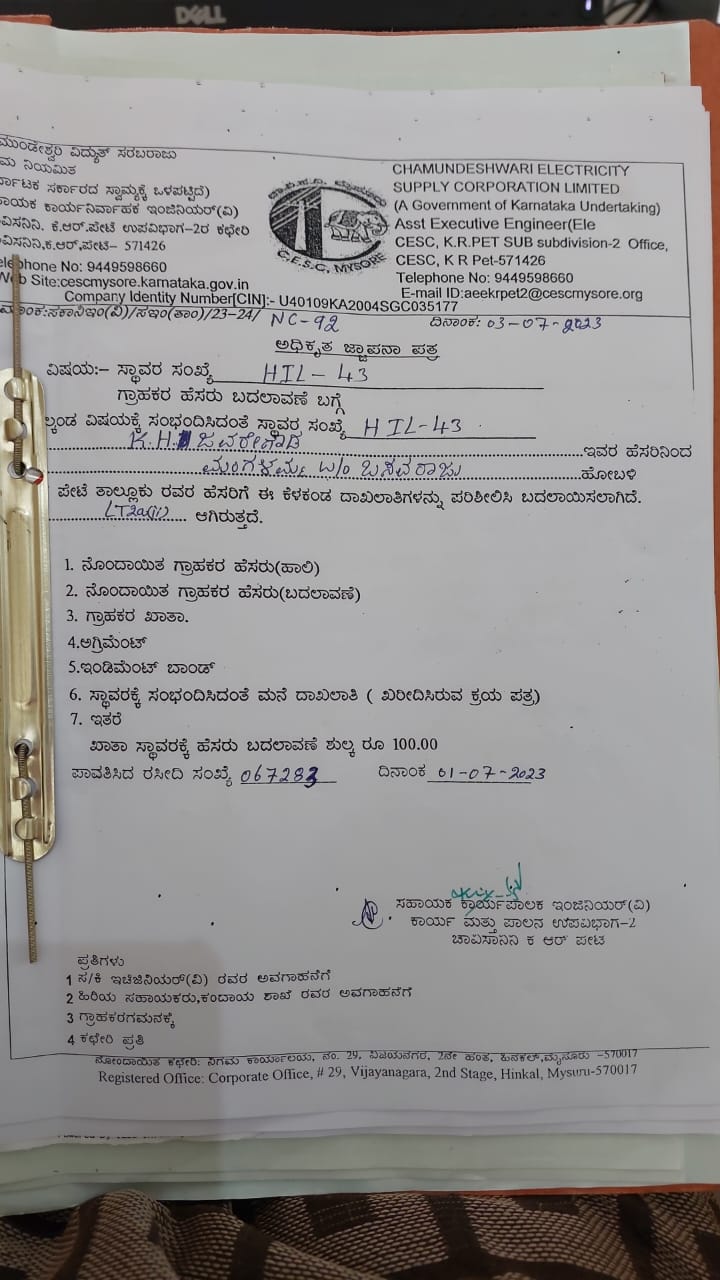 DELL
ಮುಂಡೇಶ್ವರಿ ವಿದ್ಯುತ್ ಸರಬರಾಜು
ಮ ನಿಯಮಿತ
ರ್ನಾಟಕ ಸರ್ಕಾರದ ಸ್ವಾಮ್ಯಕ್ಕೆ ಒಳಪಟ್ಟಿದೆ)
ಾಯಕ ಕಾರ್ಯನಿರ್ವಾಹಕ ಇಂಜಿನಿಯರ್(ವಿ)
ವಿಸನಿನಿ. ಕೆ.ಆರ್.ಪೇಟೆ ಉಪವಿಭಾಗ-2ರ ಕಛೇರಿ
ವಿಸನಿನಿ,ಕೆ.ಆರ್,ಪೇಟೆ– 571426
elephone No: 9449598660
Web Site:cescmysore.karnataka.gov.in
C.E.S.C, MYSORE
CHAMUNDESHWARI ELECTRICITY
SUPPLY CORPORATION LIMITED
(A Government of Karnataka Undertaking)
Asst Executive Engineer(Ele
CESC, K.R.PET SUB subdivision-2 Office,
CESC, K R Pet-571426
Telephone No: 9449598660
E-mail ID:aeekrpet2@cescmysore.org
Company Identity Number[CIN]:- U40109KA2004SGC035177
ಮಾಂಕ:ಸಕಾನಿಇಂ(ವಿ)/ಸಇಂ(ತಾಂ)/23-24/ NC-92 ದಿನಾಂಕ: 03-07-2023
ಅಧಿಕೃತ ಜ್ಞಾಪನಾ ಪತ್ರ
ವಿಷಯ:– ಸ್ಥಾವರ ಸಂಖ್ಯೆ HIL-43
ಗ್ರಾಹಕರ ಹೆಸರು ಬದಲಾವಣೆ ಬಗ್ಗೆ
ಲ್ಕಂಡ ವಿಷಯಕ್ಕೆ ಸಂಭಂದಿಸಿದಂತೆ ಸ್ಥಾವರ ಸಂಖ್ಯೆ HIL-43
K.H. ಜವರೇಗೌಡ ಇವರ ಹೆಸರಿನಿಂದ
ಮಂಗಳಮ್ಮ W/O ಬಸವರಾಜು ಹೋಬಳಿ
ಪೇಟೆ ತಾಲ್ಲೂಕು ರವರ ಹೆಸರಿಗೆ ಈ ಕೆಳಕಂಡ ದಾಖಲಾತಿಗಳನ್ನು ಪರಿಶೀಲಿಸಿ ಬದಲಾಯಿಸಲಾಗಿದೆ.
LT2a(ii) ಆಗಿರುತ್ತದೆ.
1. ನೊಂದಾಯಿತ ಗ್ರಾಹಕರ ಹೆಸರು(ಹಾಲಿ)
2. ನೊಂದಾಯಿತ ಗ್ರಾಹಕರ ಹೆಸರು(ಬದಲಾವಣೆ)
3. ಗ್ರಾಹಕರ ಖಾತಾ.
4.ಅಗ್ರಿಮೆಂಟ್
5.ಇಂಡಿಮೆಂಟ್ ಬಾಂಡ್
6. ಸ್ಥಾವರಕ್ಕೆ ಸಂಭಂದಿಸಿದಂತೆ ಮನೆ ದಾಖಲಾತಿ ( ಖರೀದಿಸಿರುವ ಕ್ರಯ ಪತ್ರ)
7. ಇತರೆ
ಖಾತಾ ಸ್ಥಾವರಕ್ಕೆ ಹೆಸರು ಬದಲಾವಣೆ ಶುಲ್ಕ ರೂ 100.00
ಪಾವತಿಸಿದ ರಸೀದಿ ಸಂಖ್ಯೆ 067283 ದಿನಾಂಕ 01-07-2023
ಸಹಾಯಕ ಕಾರ್ಯಪಾಲಕ ಇಂಜಿನಿಯರ್(ವಿ)
ಕಾರ್ಯ ಮತ್ತು ಪಾಲನ ಉಪವಿಭಾಗ-2
ಚಾವಿಸಾನಿನಿ ಕ ಆರ್ ಪೇಟೆ
ಪ್ರತಿಗಳು
1 ಸ/ಕಿ ಇಂಜಿನಿಯರ್(ವಿ) ರವರ ಅವಗಾಹನೆಗೆ
2 ಹಿರಿಯ ಸಹಾಯಕರು,ಕಂದಾಯ ಶಾಖೆ ರವರ ಅವಗಾಹನೆಗೆ
3 ಗ್ರಾಹಕರಗಮನಕ್ಕೆ
4 ಕಛೇರಿ ಪ್ರತಿ
ನೋಂದಾಯಿತ ಕಛೇರಿ: ನಿಗಮ ಕಾರ್ಯಾಲಯ, ನಂ. 29, ವಿಜಯನಗರ, 2ನೇ ಹಂತ, ಹಿನಕಲ್,ಮೈಸೂರು –570017
Registered Office: Corporate Office, # 29, Vijayanagara, 2nd Stage, Hinkal, Mysuru-570017